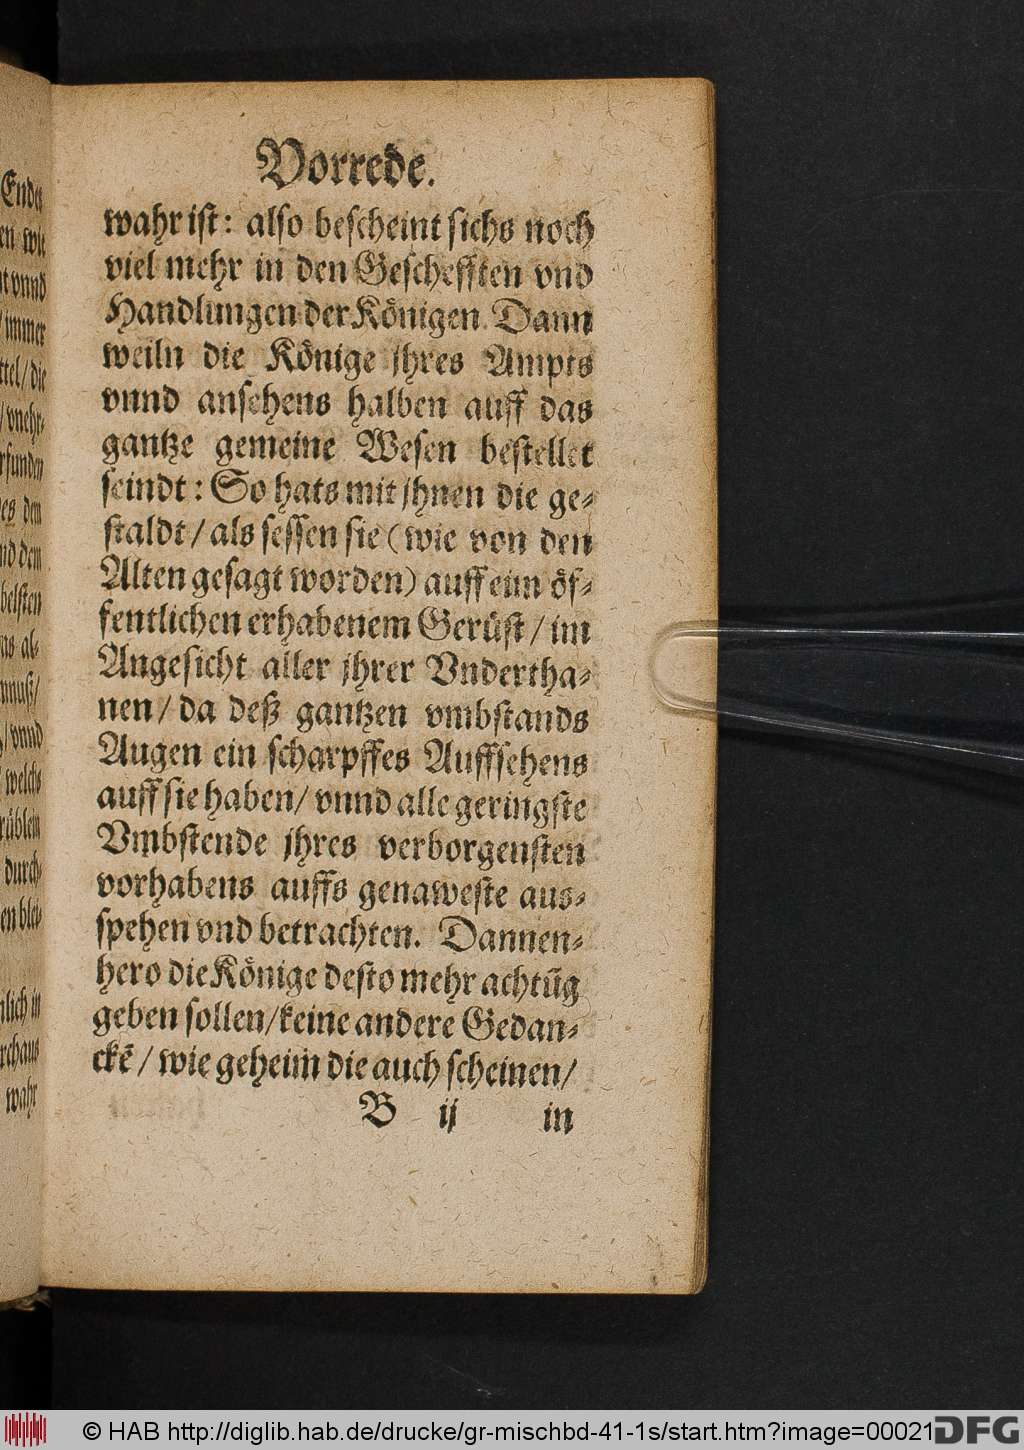 Vorrede.
wahr ist: also bescheint sichs noch
viel mehr in den Geschefften vnd
Handlungen der Königen. Dann
weiln die Könige jhres Ampts
vnnd ansehens halben auff das
gantze gemeine Wesen bestellet
seindt: So hats mit jhnen die ge-
staldt / als sessen sie (wie von den
Alten gesagt worden) auff eim öf-
fentlichen erhabenem Gerüst / im
Angesicht aller jhrer Vndertha-
nen / da deß gantzen vmbstands
Augen ein scharpffes Auffsehens
auff sie haben / vnnd alle geringste
Vmbstende jhres verborgensten
vorhabens auffs genaweste aus-
spehen vnd betrachten. Dannen-
hero die Könige desto mehr achtũg
geben sollen / keine andere Gedan-
ckẽ / wie geheim die auch scheinen /
B ij in
Enden
en wie
t vnnd
/ immer
ttel / die
/ vnehr-
rfunden
es dem
nd dem
belsten
ns al-
nnuß /
/ vnnd
welchs
rüblein
durch-
en blei-
nlich in
rchaus
wahr
© HAB http://diglib.hab.de/drucke/gr-mischbd-41-1s/start.htm?image=00021
DFG